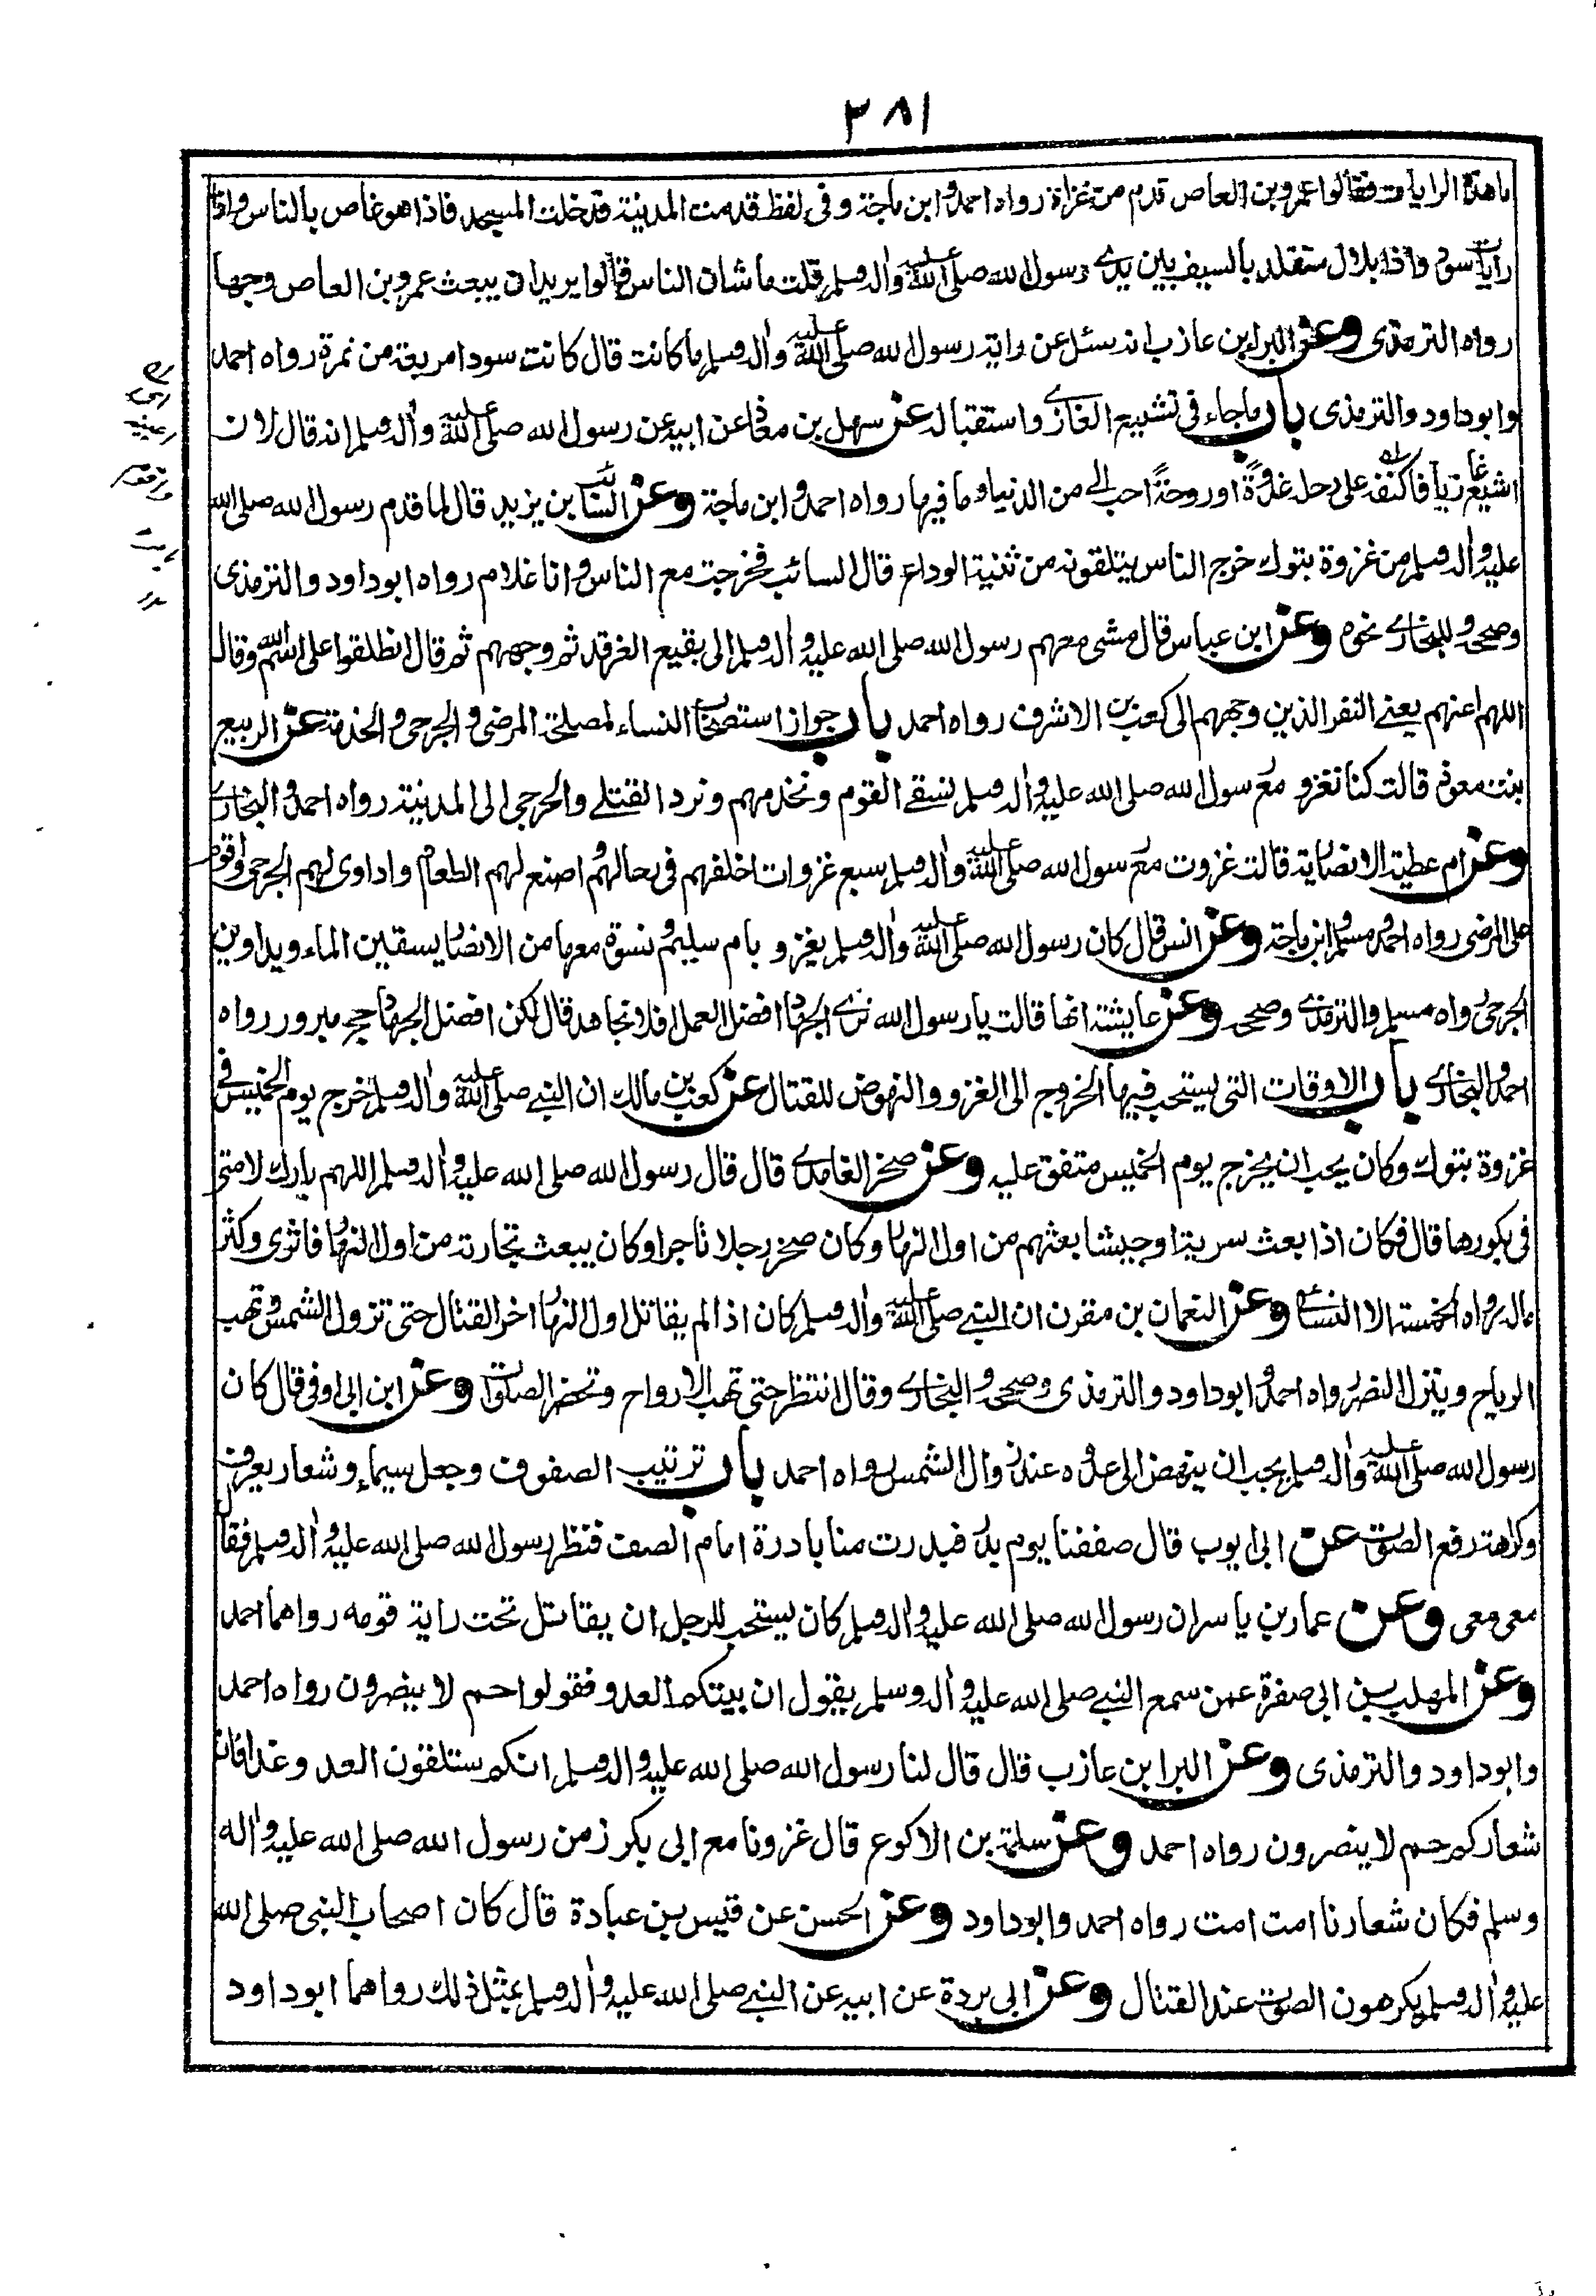 ٣٨١
ما هذه الرايات فقالوا عمرو بن العاص قدم من غزاة رواه احمد وابن ماجة وفى لفظ قدمت المدينة فدخلت المسجد فاذا هو غاص بالناس واذا
رايات سود واذا بلال متقلد بالسيف بين يدى رسول الله صلى الله عليه واله وسلم قلت ما شان الناس قالوا يريد ان يبعث عمرو بن العاص وجها
رواه الترمذى وعن البراء بن عازب انه سئل عن راية رسول الله صلى الله عليه واله وسلم ما كانت قال كانت سودا مربعة من نمرة رواه احمد
وابو داود والترمذى باب ماجاء فى تشييع الغازى واستقباله عن سهل بن معاذ عن ابيه عن رسول الله صلى الله عليه واله وسلم انه قال لان
اشيع غازيا فاكنفه على رحله غدوة او روحة احب الى من الدنيا وما فيها رواه احمد وابن ماجة وعن السائب بن يزيد قال لما قدم رسول الله صلى الله
عليه واله وسلم من غزوة تبوك خرج الناس يتلقونه من ثنية الوداع قال السائب فخرجت مع الناس وانا غلام رواه ابو داود والترمذى
وصححه وللبخارى نحوه وعن ابن عباس قال مشى معهم رسول الله صلى الله عليه واله وسلم الى بقيع الغرقد ثم وجههم ثم قال انطلقوا على اسم الله وقال
اللهم اعنهم يعنى النفر الذين وجههم الى كعب بن الاشرف رواه احمد باب جواز استصحاب النساء لمصلحة المرضى والجرحى والخدمة عن الربيع
بنت معوذ قالت كنا نغزو مع رسول الله صلى الله عليه واله وسلم نسقى القوم ونخدمهم ونرد القتلى والجرحى الى المدينة رواه احمد والبخارى
وعن ام عطية الانصارية قالت غزوت مع رسول الله صلى الله عليه واله وسلم سبع غزوات اخلفهم فى رحالهم واصنع لهم الطعام واداوى لهم الجرحى واقوم
على المرضى رواه احمد ومسلم وابن ماجة وعن انس قال كان رسول الله صلى الله عليه واله وسلم يغزو بام سليم ونسوة معها من الانصار يسقين الماء ويداوين
الجرحى رواه مسلم والترمذى وصححه وعن عايشة انها قالت يا رسول الله نرى الجهاد افضل العمل افلا نجاهد قال لكن افضل الجهاد حج مبرور رواه
احمد والبخارى باب الاوقات التى يستحب فيها الخروج الى الغزو والنهوض للقتال عن كعب بن مالك ان النبى صلى الله عليه واله وسلم خرج يوم الخميس فى
غزوة تبوك وكان يحب ان يخرج يوم الخميس متفق عليه وعن صخر الغامدى قال قال رسول الله صلى الله عليه واله وسلم اللهم بارك لامتى
فى بكورها قال فكان اذا بعث سرية او جيشا بعثهم من اول النهار وكان صخر رجلا تاجرا وكان يبعث تجارته من اول النهار فاثرى وكثر
ماله رواه الخمسة الا النسائ وعن النعمان بن مقرن ان النبى صلى الله عليه واله وسلم كان اذا لم يقاتل اول النهار اخر القتال حتى تزول الشمس وتهب
الرياح وينزل النصر رواه احمد وابو داود والترمذى وصححه والبخارى وقال انتظر حتى تهب الارواح وتحضر الصلوات وعن ابن ابى اوفى قال كان
رسول الله صلى الله عليه واله وسلم يحب ان ينهض الى عدوه عند زوال الشمس رواه احمد باب ترتيب الصفوف وجعل سيماء وشعار يعرف
وكراهة رفع الصوت عن ابى ايوب قال صففنا يوم بدر فبدرت منا بادرة امام الصف فنظر رسول الله صلى الله عليه واله وسلم فقال
معى معى وعن عمار بن ياسر ان رسول الله صلى الله عليه واله وسلم كان يستحب للرجل ان يقاتل تحت راية قومه رواهما احمد
وعن المهلب بن ابى صفرة عمن سمع النبى صلى الله عليه واله وسلم يقول ان بيتكم العدو فقولوا حم لا ينصرون رواه احمد
وابو داود والترمذى وعن البرا بن عازب قال قال لنا رسول الله صلى الله عليه واله وسلم انكم ستلقون العدو غدا فان
شعاركم حم لا ينصرون رواه احمد وعن سلمة بن الاكوع قال غزونا مع ابى بكر زمن رسول الله صلى الله عليه واله
وسلم فكان شعارنا امت امت رواه احمد وابو داود وعن الحسن عن قيس بن عبادة قال كان اصحاب النبى صلى الله
عليه واله وسلم يكرهون الصوت عند القتال وعن ابى بردة عن ابيه عن النبى صلى الله عليه واله وسلم بمثل ذلك رواهما ابو داود